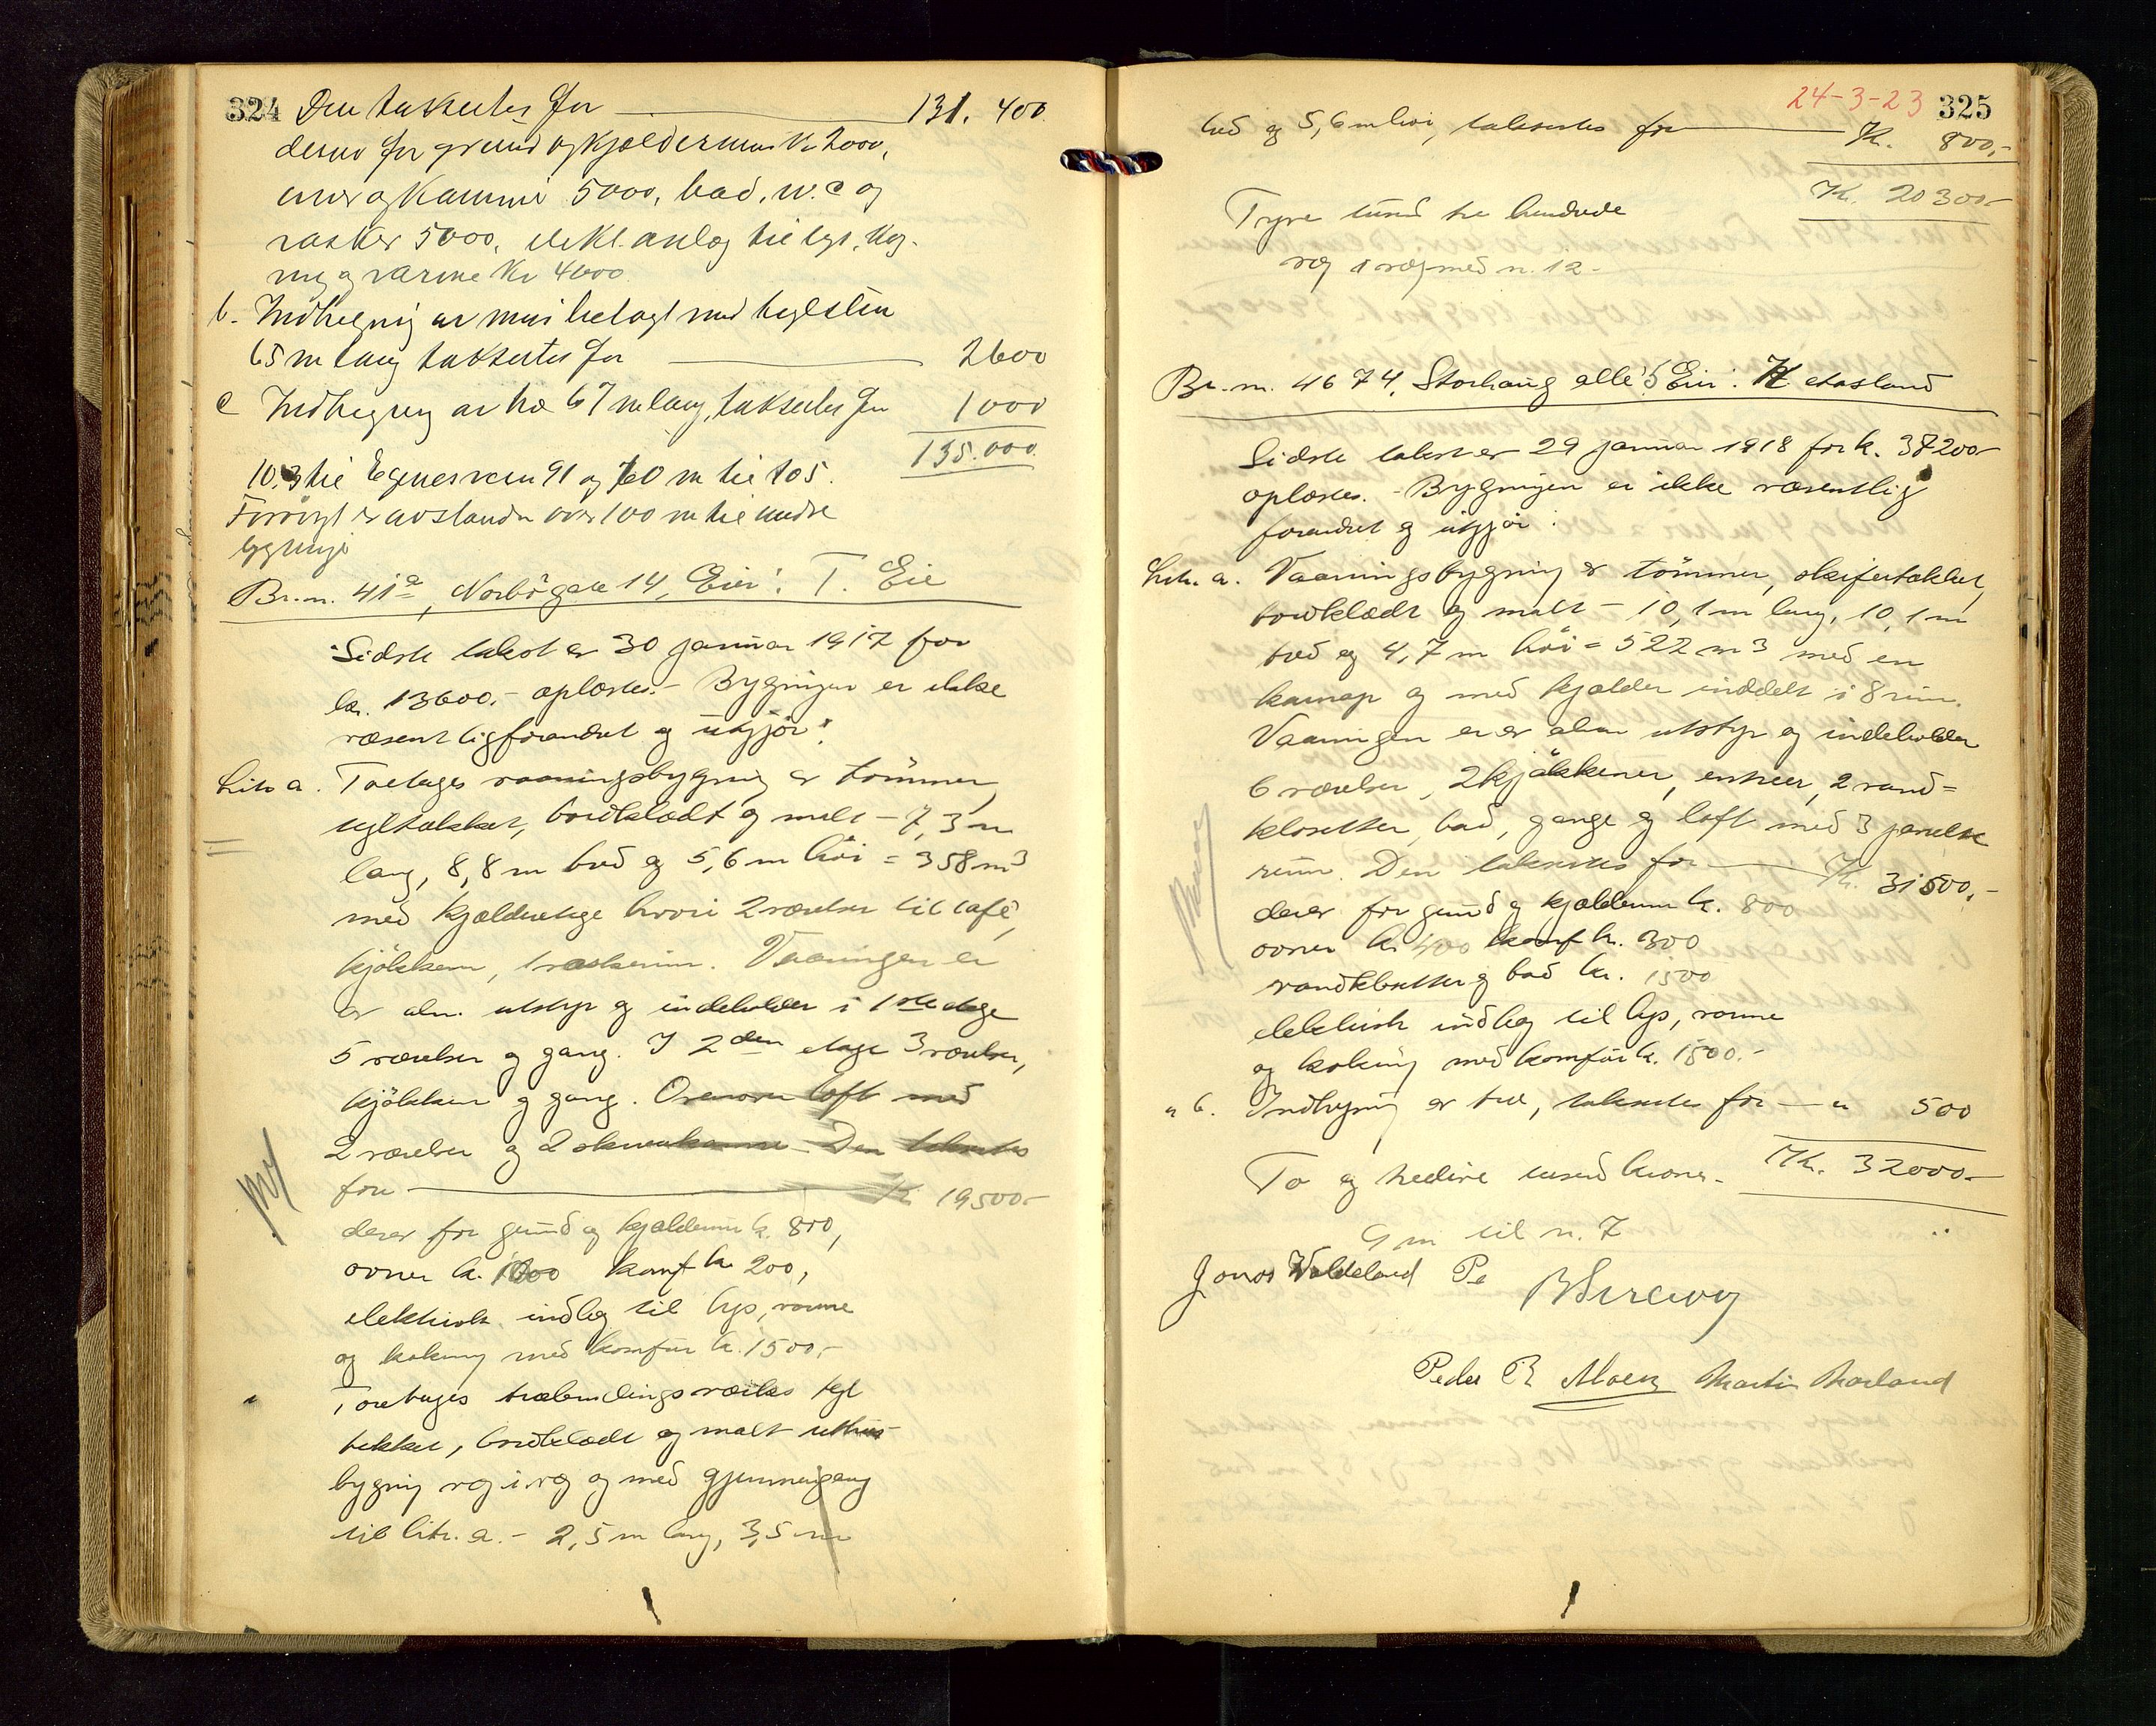 324 Den taksertes for 131.400
derav for grund og kjælderrum Kr 2000,
ovner og Kaminer 5000, bad, w.c og
vasker 5000, elekt. anlæg til lys, kog-
ning og varme Kr 4000
b. Indhegning av mur belagt med teglsten
65 m lang taksertes for 2600
c Indhegning av træ 67 m lang, taksertes for 1000
135.000
10.3 til Egenesveien 91 og 60 m til 105.
Forøvrigt er avstanden over 100 m til andre
bygninger
Br.n. 41a, Norbögate 14, Eier: T. Eie
Sidste takst er 30 januar 1917 for
kr. 13600.- oplæstes.- Bygningen er ikke
væsentlig forandret og utgjör:
Litr a. Toetages vaaningsbygning av tömmer,
tegltækket, bordklædt og malt - 7,3 m
lang, 8,8 m bred og 5,6 m höi = 358 m3
med kjælderetage hvori 2 værelser til café,
kjökken, vaskerum. Vaaningen er
av alm. utstyr og indeholder i 1ste etage
5 værelser og gang. I 2den etage 3 værelser,
kjökken og gang. Ovenover loft med
2 værelser og 2 skraakamre. Den takseres
for Kr 19500.-
derav for grund og kjælderrum kr. 800,
ovner kr. 1000 komf kr 200,
elektrisk indlæg til lys, varme
og kokning med komfur kr. 1500.-
Toetages træbindingsværks tegl
tækket, bordklædt og malt uthus-
bygning væg i væg og med gjennemgang
til litr. a. - 2,5 m lang, 3,5 m
24-3-23 325
bred og 5,6 m höi, taksertes for Kr. 800,-
Kr. 20300.-
Tyve tusind tre hundrede
væg i væg med n. 12.-
Br.n. 4674, Storhaug allé 5 Eier: K
Sidste takst er 29 januar 1918 for kr. 37200.-
oplæstes. - Bygningen er ikke væsentlig
forandret og utgjör:
Litr. a. Vaaningsbygning av tömmer, skifertækket,
bordklædt og malt - 10,1 m lang, 10,1 m
bred og 4,7 m höi = 522 m3 med en
karnap og med kjælder inddelt i 8 rum.
Vaaningen er av alm utstyr og indeholder
6 værelser, 2 kjökkener, entreer, 2 vand=
klosetter, bad, gange og loft med 3 panelte
rum. Den takseres for Kr. 31500,-
derav for grund og kjælderrum kr. 800
ovner kr 400 komf kr. 300
vandklosetter og bad kr. 1500
elektrisk indlæg til lys, varme
og kokning med komfur kr. 1500.-
" b. Indhegning av træ, takseres for " 500
Kr. 32000.-
To og tredive tusend kroner.
9 m til n. 7
Jonas Waldeland
Peder
Martin